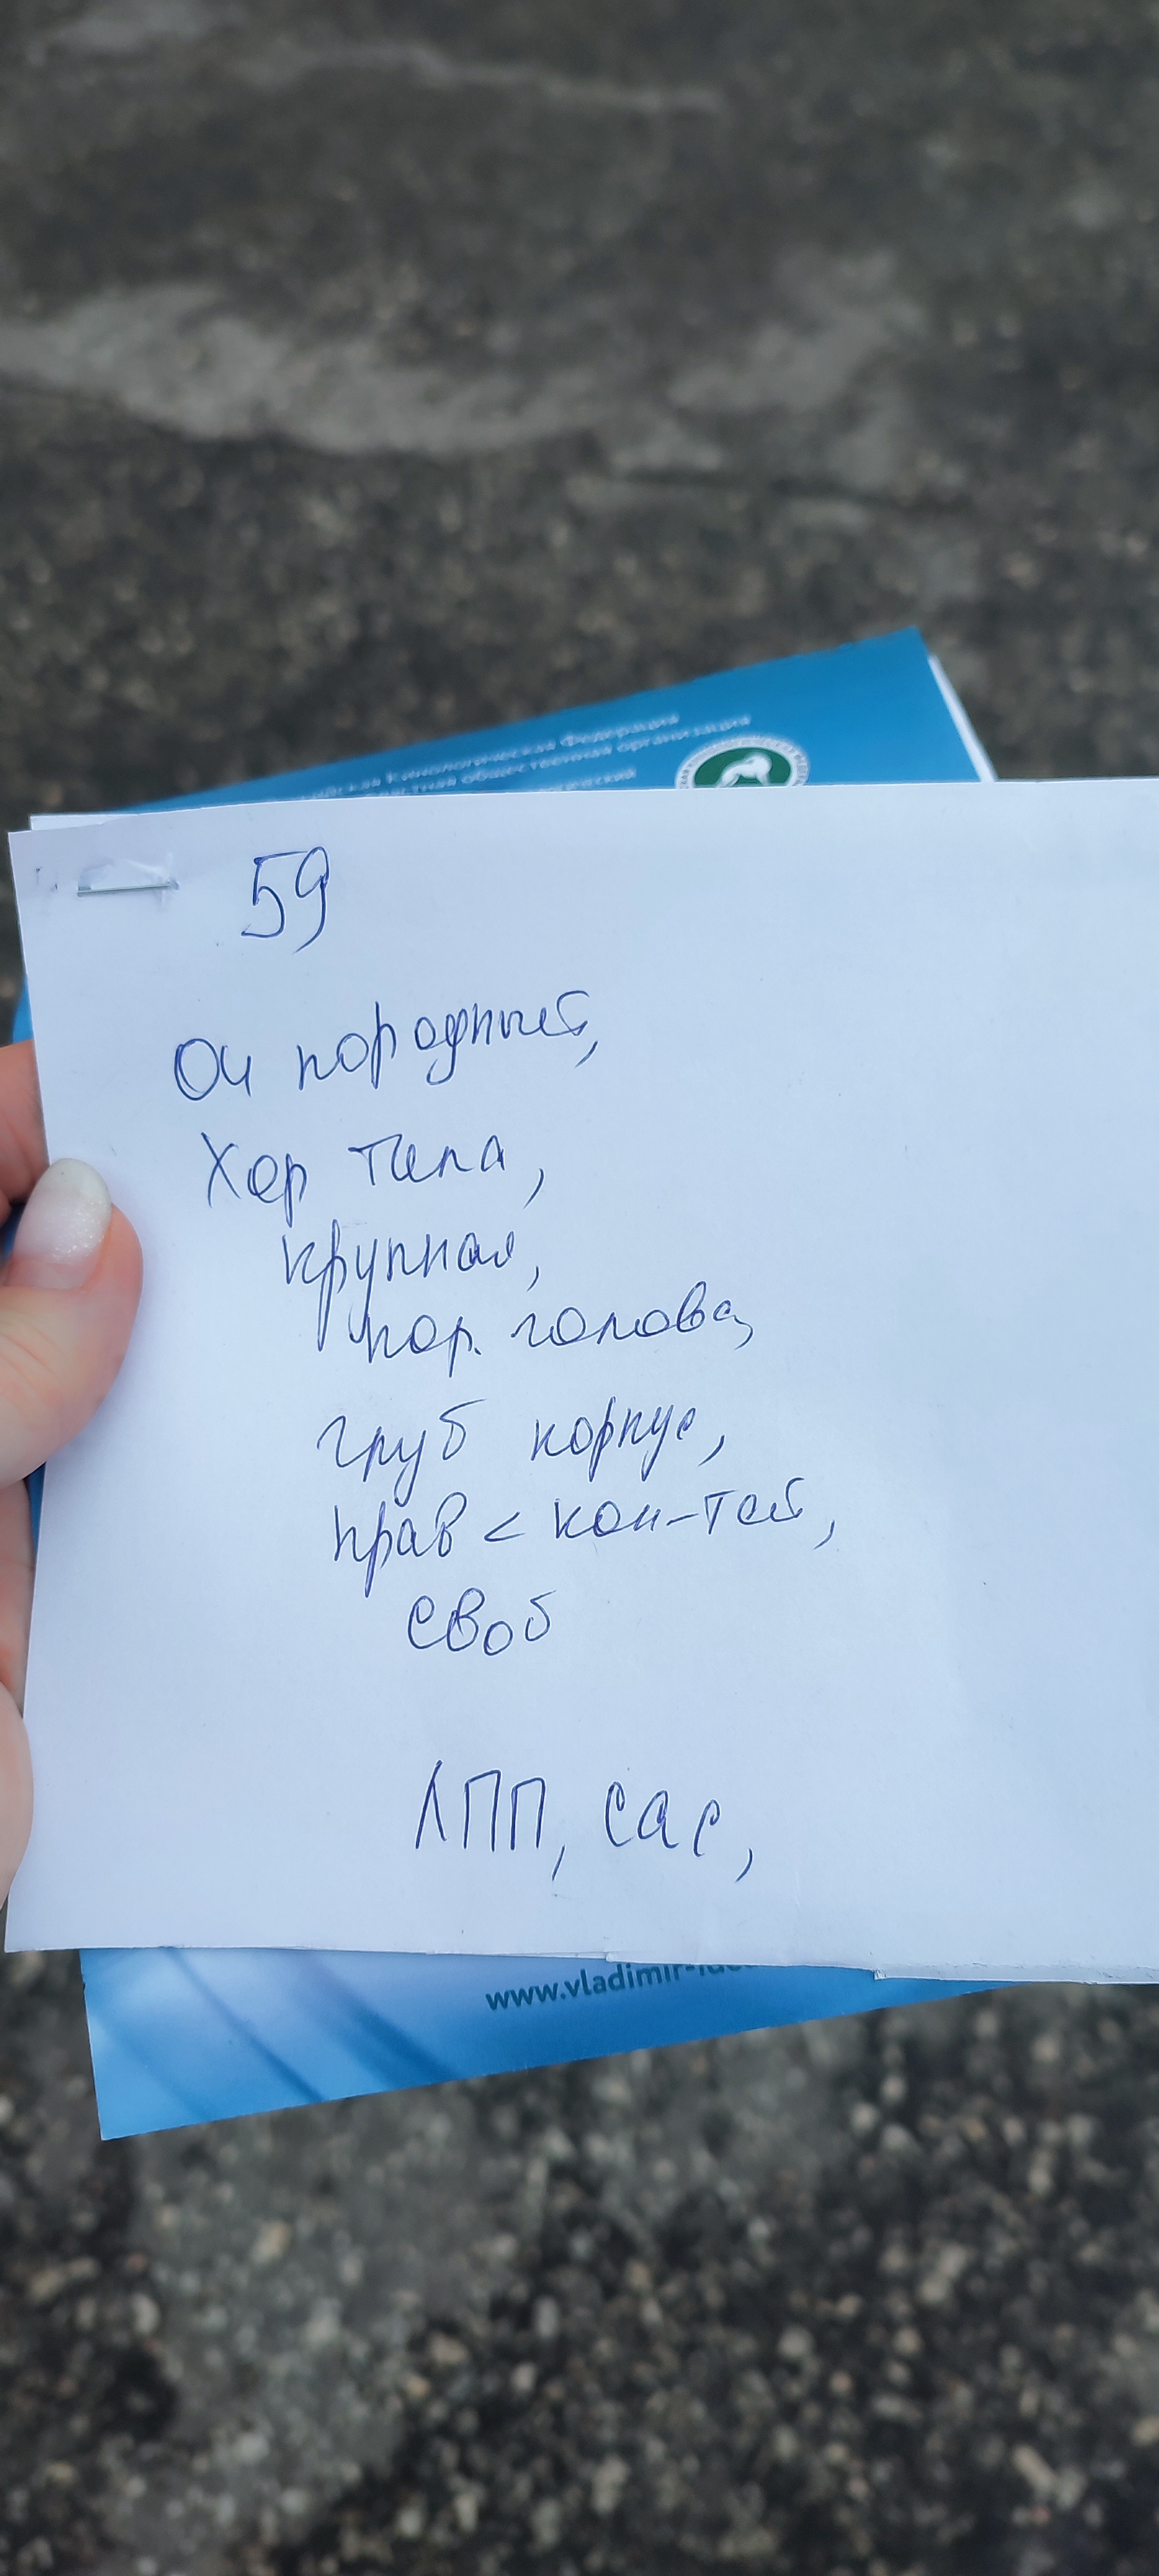 Кинологическая Федерация
общественная организация
59
Оч породный,
Хор типа,
крупная,
пор. голова,
груб корпус,
прав < кон-тей,
своб
ЛПП, САС,
www.vladimir-